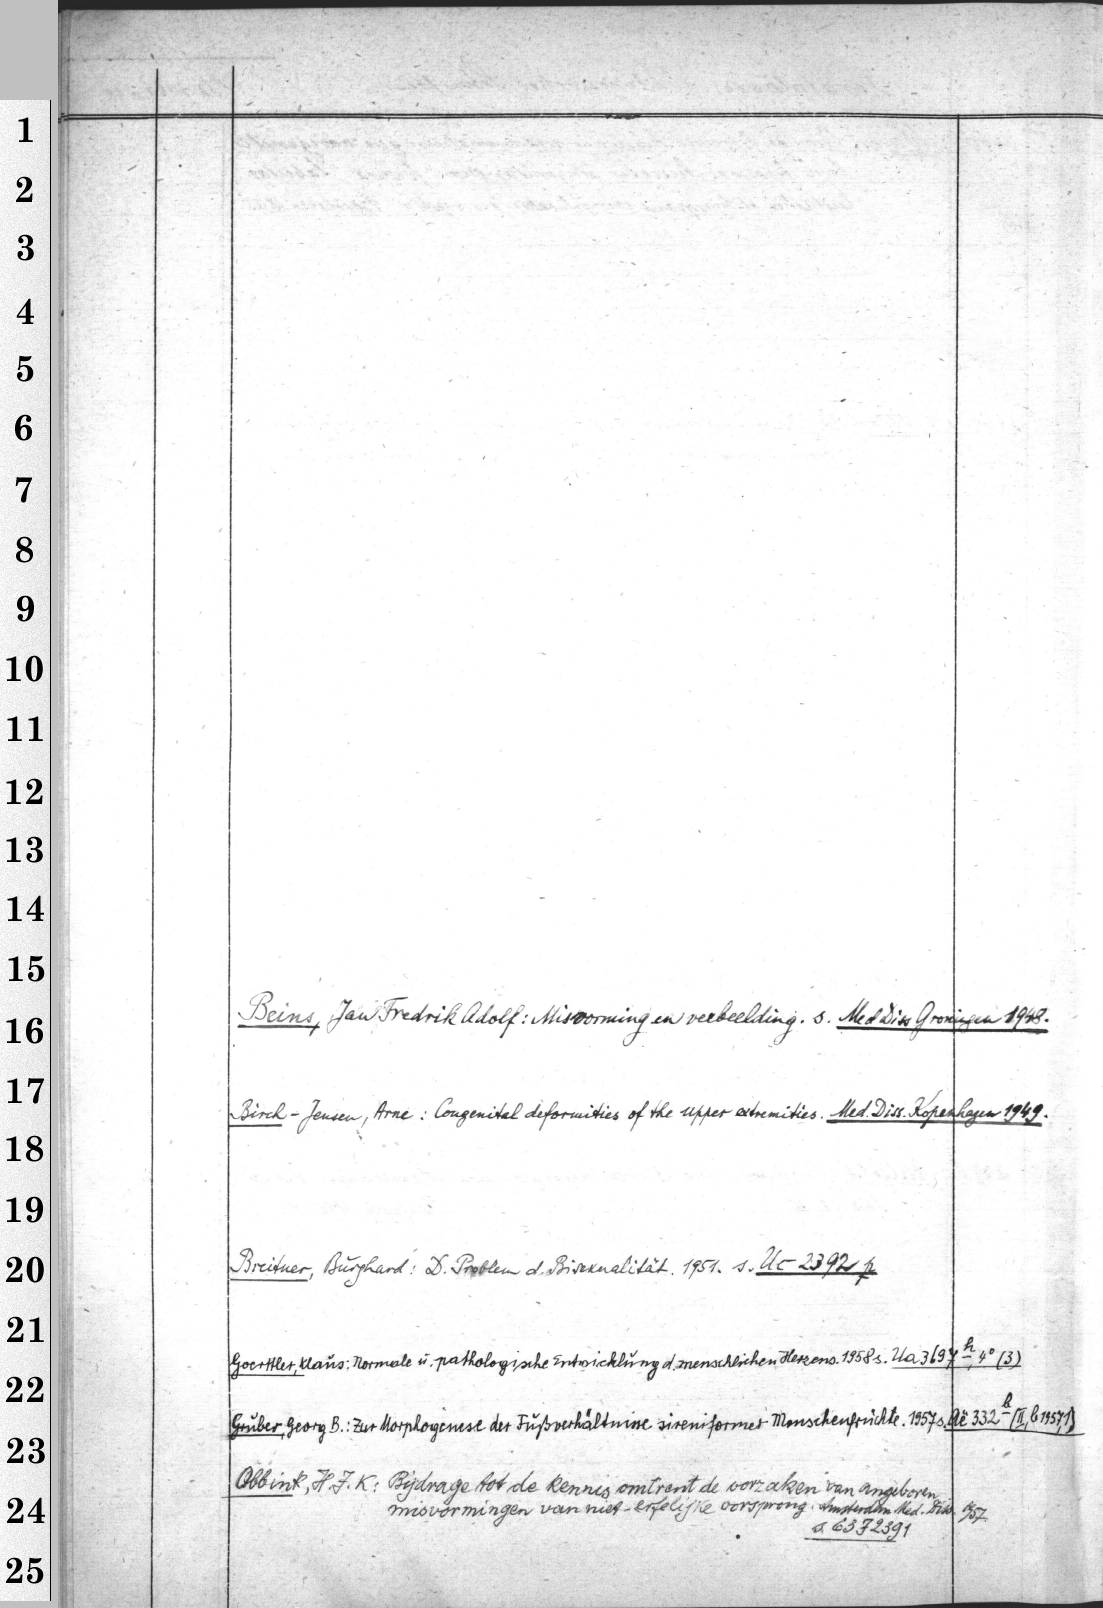 1
2
3
4
5
6
7
8
9
10
11
12
13
14
15
Beins, Jan Fredrik Adolf: Misvorming en verbeelding. s. Med Diss Groningen 1948.
16
17
Birch-Jensen, Arne: Congenital deformities of the upper extremities. Med. Diss. Kopenhagen 1949.
18
19
Breitner, Burghard: D. Problem d. Bisexualität. 1951. s. Uc 2392 p
20
21
Goerttler, Klaus: Normale u. pathologische Entwicklung d. menschlichen Herzens. 1958 s. Ua 3697 h, 4° (3)
22
Gruber, Georg B.: Zur Morphogenese der Fußverhältnisse sireniformer Menschenfrüchte. 1957 s. Aë 332 b (II, b 1957,1)
23
Obbink, H. J. K: Bijdrage tot de kennis omtrent de oorzaken van angeboren
misvormingen van niet-erfelijke oorsprong. Amsterdam Med. Diss. 1957
24
s. 63 7 2391
25